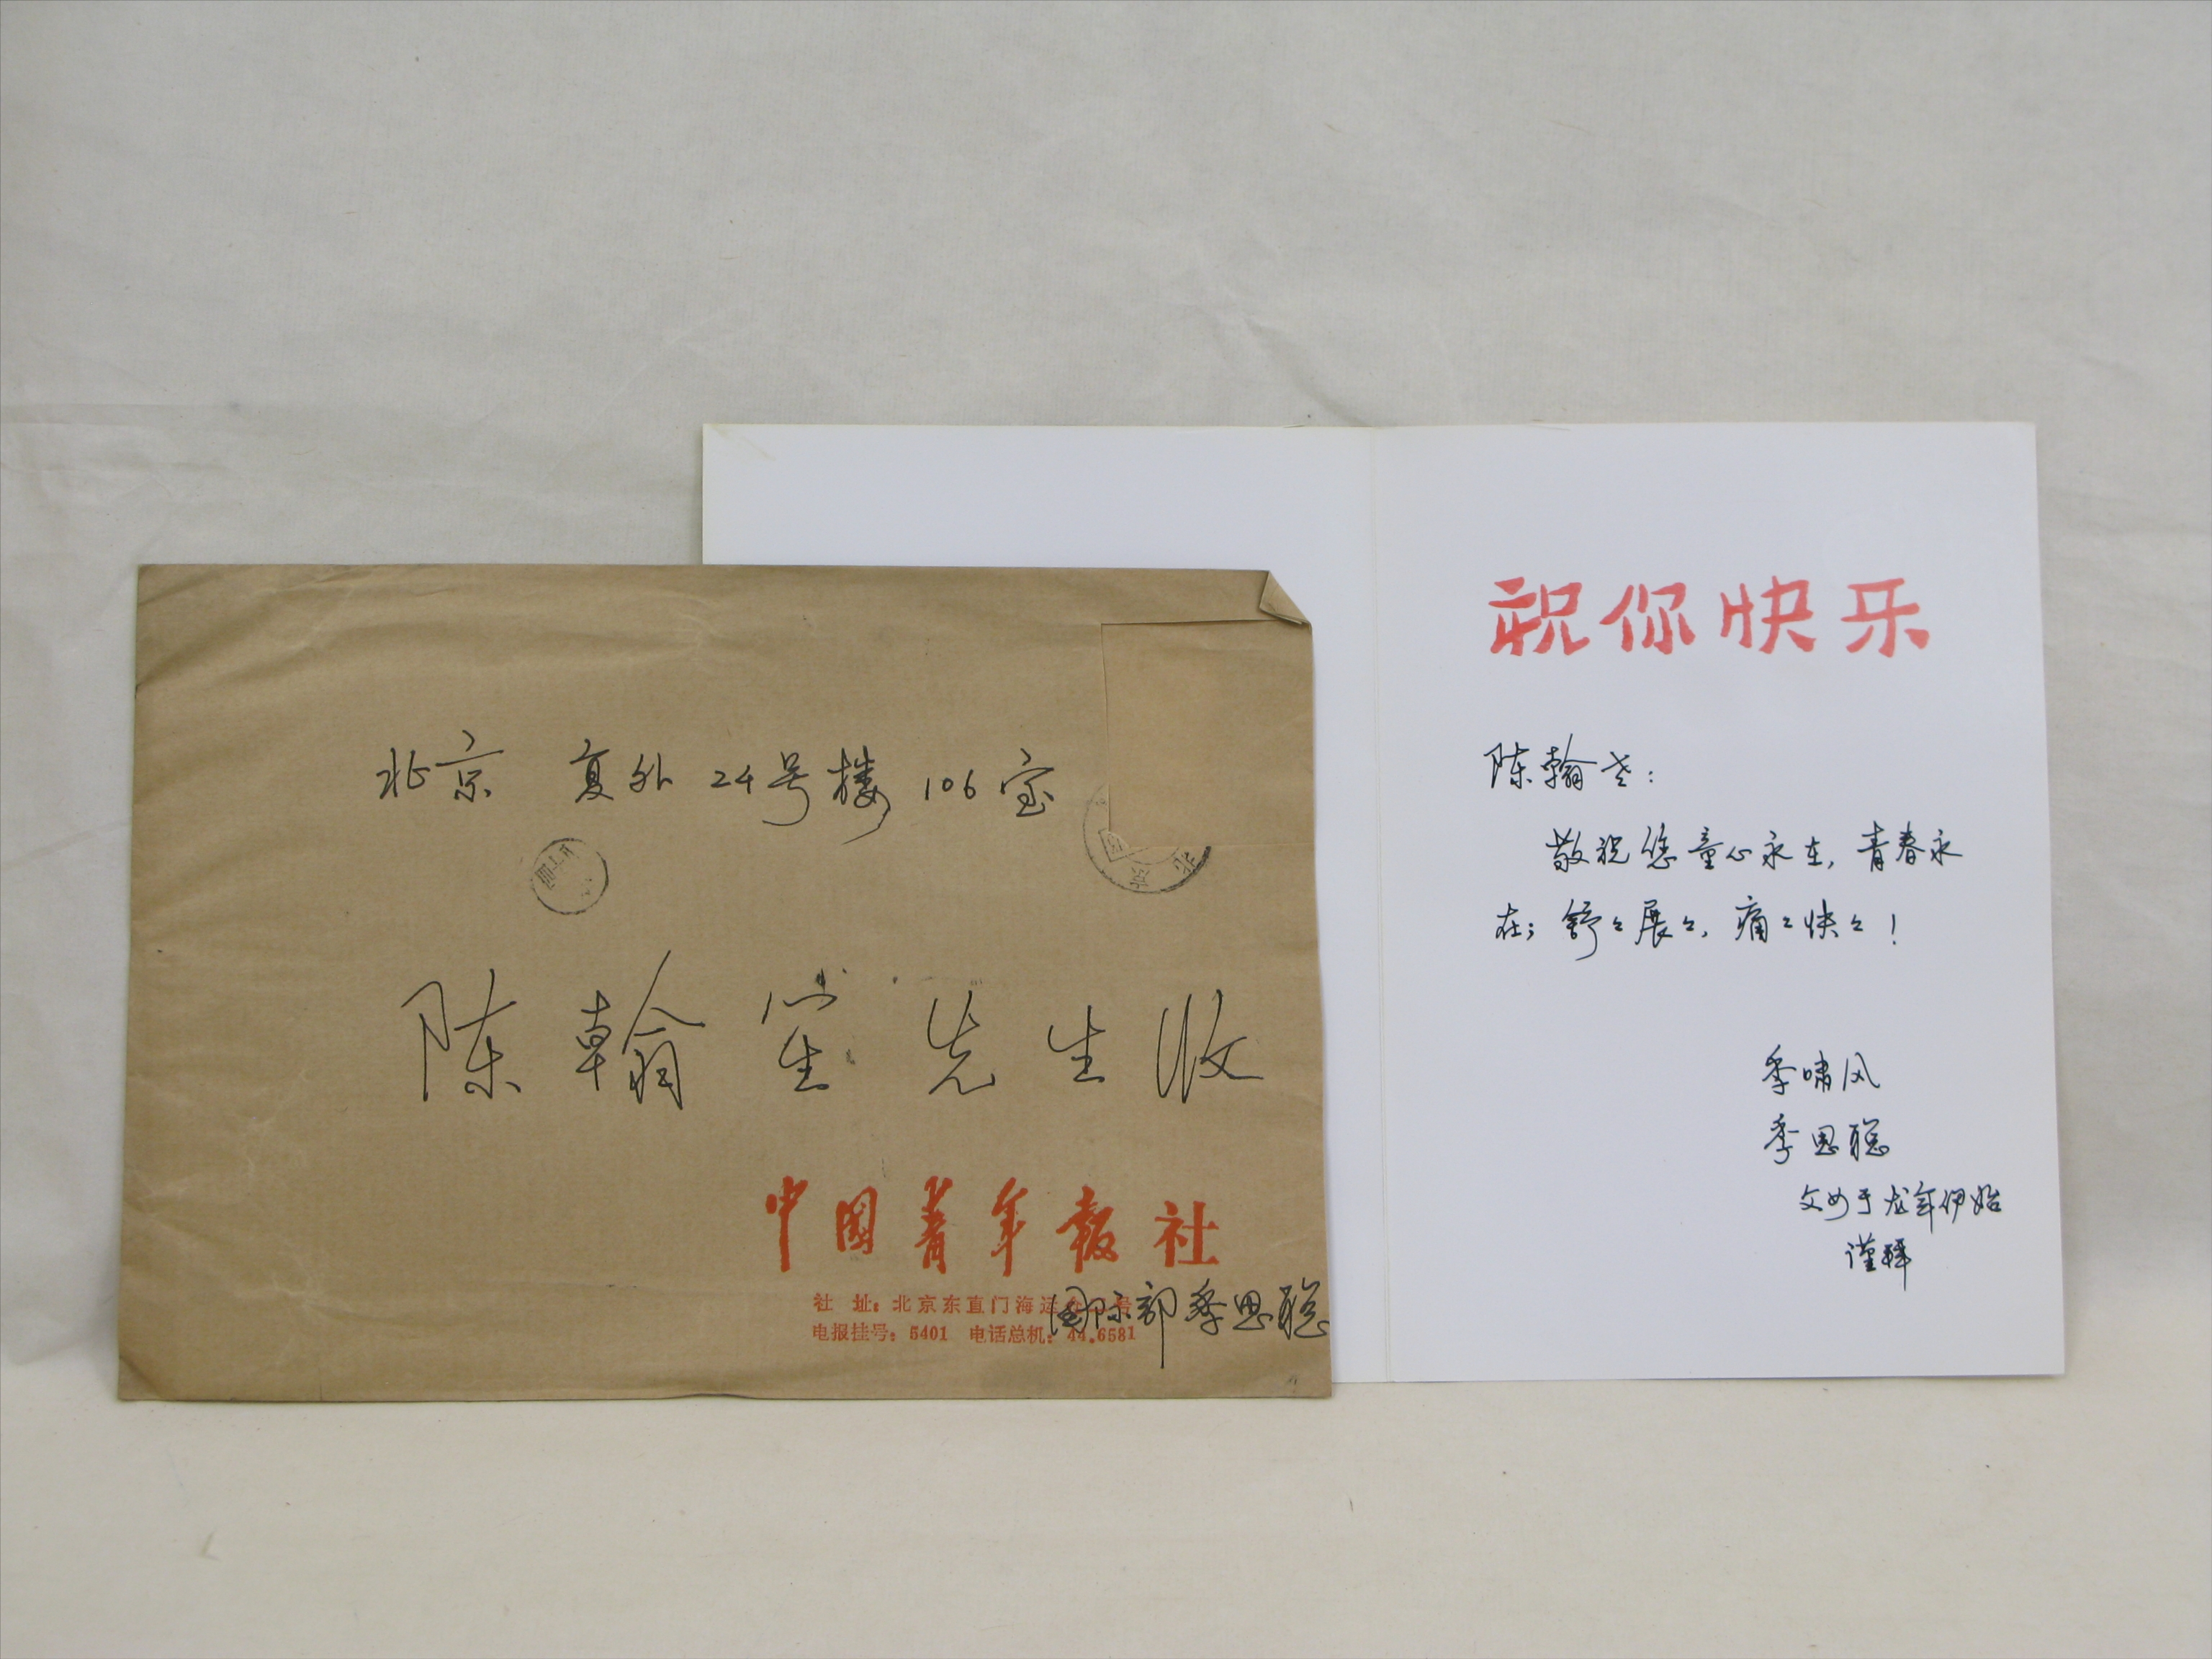 北京 复外 24号楼 106室
陈翰笙先生收
中国青年报社
社 址：北京东直门海运仓二号
国际部季思聪
电报挂号：5401 电话总机：44.6581
北京
祝你快乐
陈翰老：
敬祝您童心永在，青春永
在；舒々展々、痛々快々！
季啸风
季思聪
父女于龙年伊始
谨拜